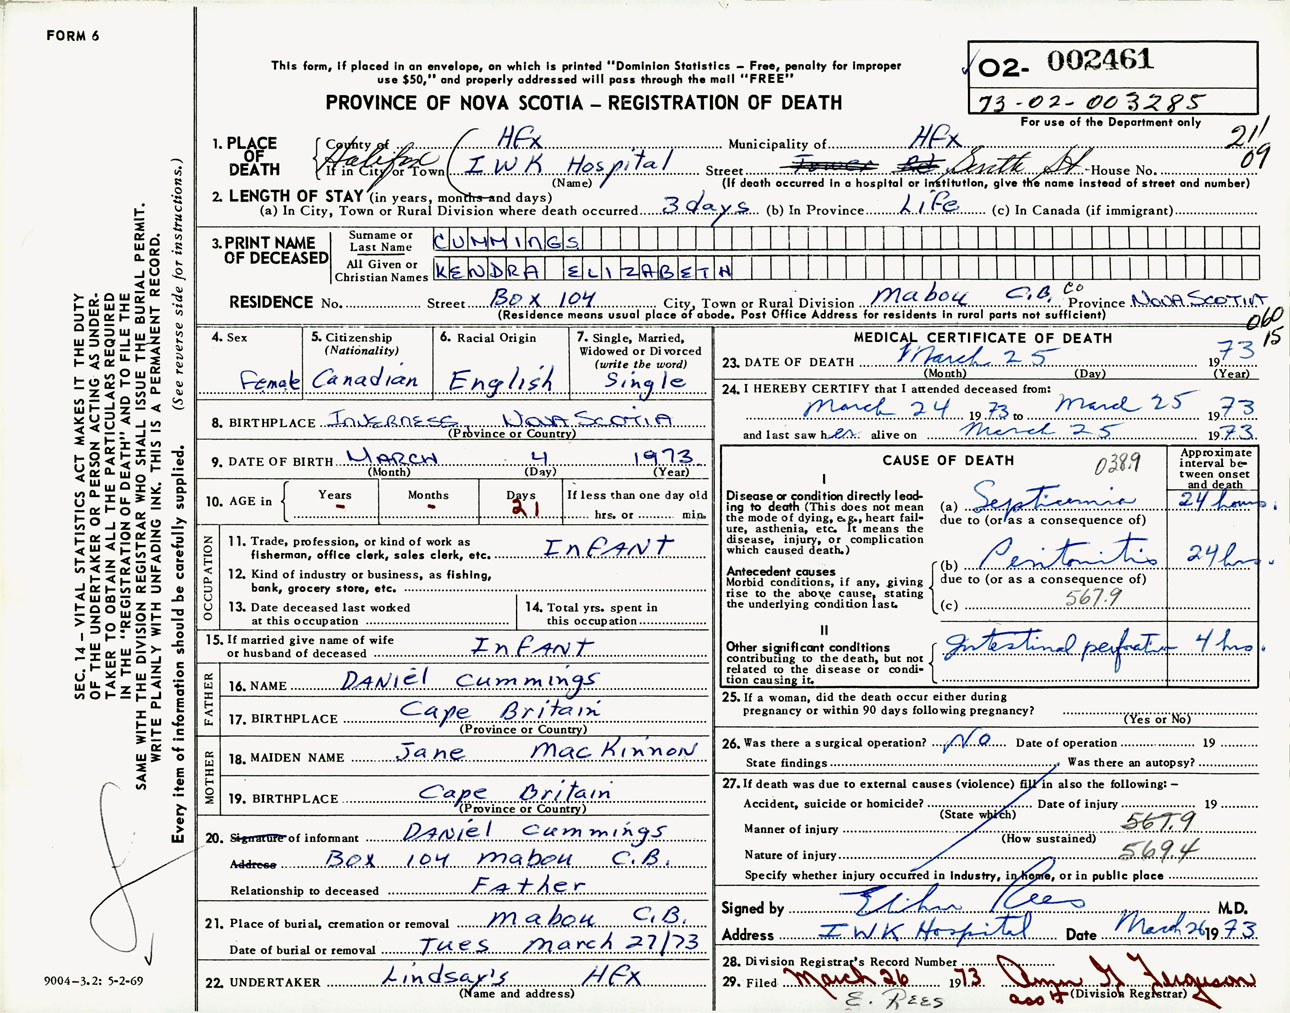 FORM 6
This form, if placed in an envelope, on which is printed "Dominion Statistics — Free, penalty for improper
use $50," and properly addressed will pass through the mail "FREE"
PROVINCE OF NOVA SCOTIA — REGISTRATION OF DEATH
02- 002461
73-02-003285
For use of the Department only
211
09
1. PLACE OF DEATH
County of HFX Municipality of HFX
Halifax
If in City or Town IWK Hospital Street Tower Rd South St House No.
(Name) (If death occurred in a hospital or institution, give the name instead of street and number)
2. LENGTH OF STAY (in years, months and days)
(a) In City, Town or Rural Division where death occurred 3 days (b) In Province Life (c) In Canada (if immigrant)
3. PRINT NAME OF DECEASED
Surname or Last Name CUMMINGS
All Given or Christian Names KENDRA ELIZABETH
RESIDENCE No. Street BOX 104 City, Town or Rural Division Mabou C.B. Co Province NOVA SCOTIA
(Residence means usual place of abode. Post Office Address for residents in rural parts not sufficient)
060
15
4. Sex Female
5. Citizenship (Nationality) Canadian
6. Racial Origin English
7. Single, Married, Widowed or Divorced (write the word) Single
8. BIRTHPLACE INVERNESS NOVA SCOTIA
(Province or Country)
9. DATE OF BIRTH MARCH 4 1973
(Month) (Day) (Year)
10. AGE in Years - Months - Days 21 If less than one day old hrs. or min.
OCCUPATION
11. Trade, profession, or kind of work as fisherman, office clerk, sales clerk, etc. INFANT
12. Kind of industry or business, as fishing, bank, grocery store, etc.
13. Date deceased last worked at this occupation
14. Total yrs. spent in this occupation
15. If married give name of wife or husband of deceased INFANT
FATHER
16. NAME DANiel Cummings
17. BIRTHPLACE Cape Britain
(Province or Country)
MOTHER
18. MAIDEN NAME Jane MacKinnon
19. BIRTHPLACE Cape Britain
(Province or Country)
20. Signature of informant DANiel Cummings
Address Box 104 Mabou C.B.
Relationship to deceased Father
21. Place of burial, cremation or removal Mabou C.B.
Date of burial or removal Tues March 27/73
22. UNDERTAKER Lindsay's HFX
(Name and address)
MEDICAL CERTIFICATE OF DEATH
23. DATE OF DEATH March 25 1973
(Month) (Day) (Year)
24. I HEREBY CERTIFY that I attended deceased from:
March 24 1973 to March 25 1973
and last saw her alive on March 25 1973
CAUSE OF DEATH 038.9
Approximate interval between onset and death
I
Disease or condition directly leading to death (This does not mean the mode of dying, e.g., heart failure, asthenia, etc. It means the disease, injury, or complication which caused death.)
(a) Septicemia 24 hours.
due to (or as a consequence of)
Antecedent causes
Morbid conditions, if any, giving rise to the above cause, stating the underlying condition last.
(b) Peritonitis 24 hrs.
due to (or as a consequence of)
(c) 567.9
II
Other significant conditions contributing to the death, but not related to the disease or condition causing it.
Intestinal perforation 4 hrs.
25. If a woman, did the death occur either during pregnancy or within 90 days following pregnancy?
(Yes or No)
26. Was there a surgical operation? No Date of operation 19
State findings Was there an autopsy?
27. If death was due to external causes (violence) fill in also the following: —
Accident, suicide or homicide? Date of injury 19
(State which)
Manner of injury 567.9
(How sustained)
Nature of injury 569.4
Specify whether injury occurred in industry, in home, or in public place
Signed by Elihu Rees M.D.
Address IWK Hospital Date March 26 1973
28. Division Registrar's Record Number
29. Filed March 26 1973 Ann G Ferguson
asst (Division Registrar)
E. REES
SEC. 14 — VITAL STATISTICS ACT MAKES IT THE DUTY
OF THE UNDERTAKER OR PERSON ACTING AS UNDER-
TAKER TO OBTAIN ALL THE PARTICULARS REQUIRED
IN THE "REGISTRATION OF DEATH" AND TO FILE THE
SAME WITH THE DIVISION REGISTRAR WHO SHALL ISSUE THE BURIAL PERMIT.
WRITE PLAINLY WITH UNFADING INK. THIS IS A PERMANENT RECORD.
Every item of information should be carefully supplied. (See reverse side for instructions.)
9004-3.2: 5-2-69